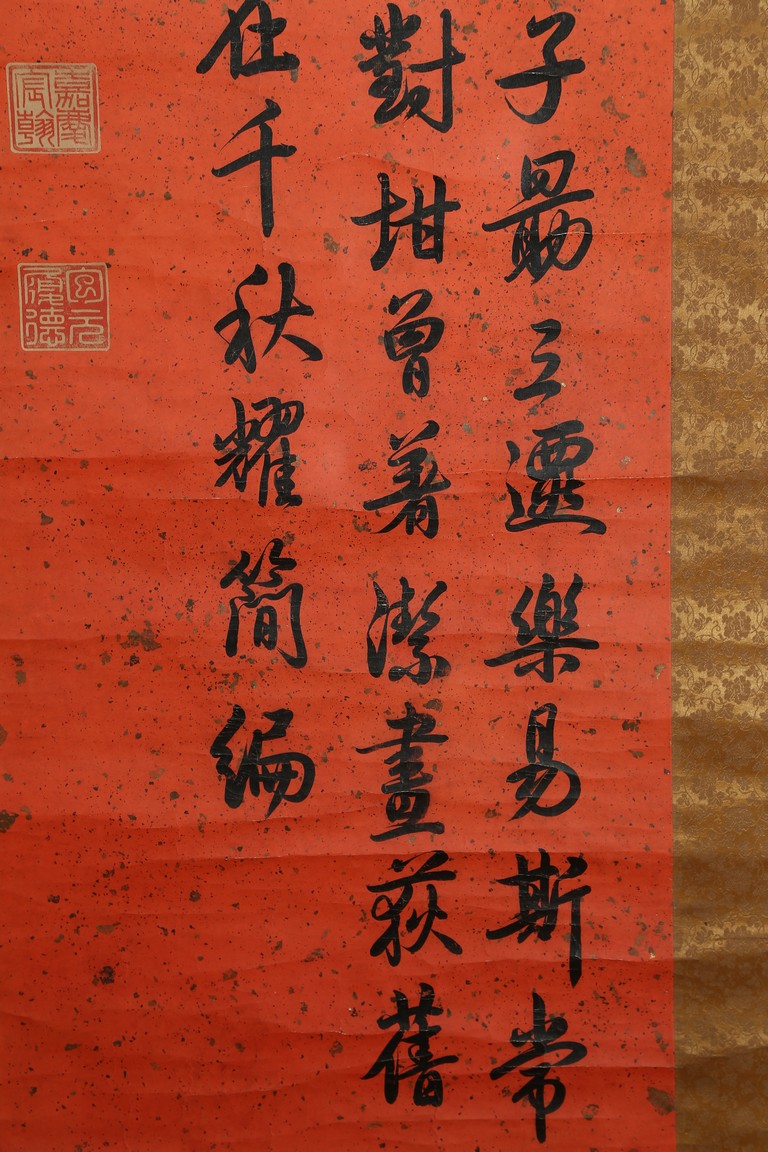 子勗三遷樂易斯常
對坩曾著潔畫荻舊
在千秋耀簡編
嘉慶宸翰